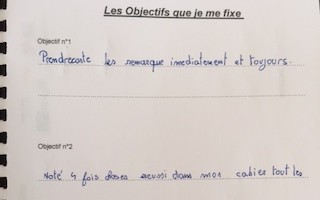 Les Objectifs que je me fixe
Objectif n°1
Prendrecomte les remarque imediatement et toujours.
Objectif n°2
Noté 4 fois doses reussi dans mon cahier tout les